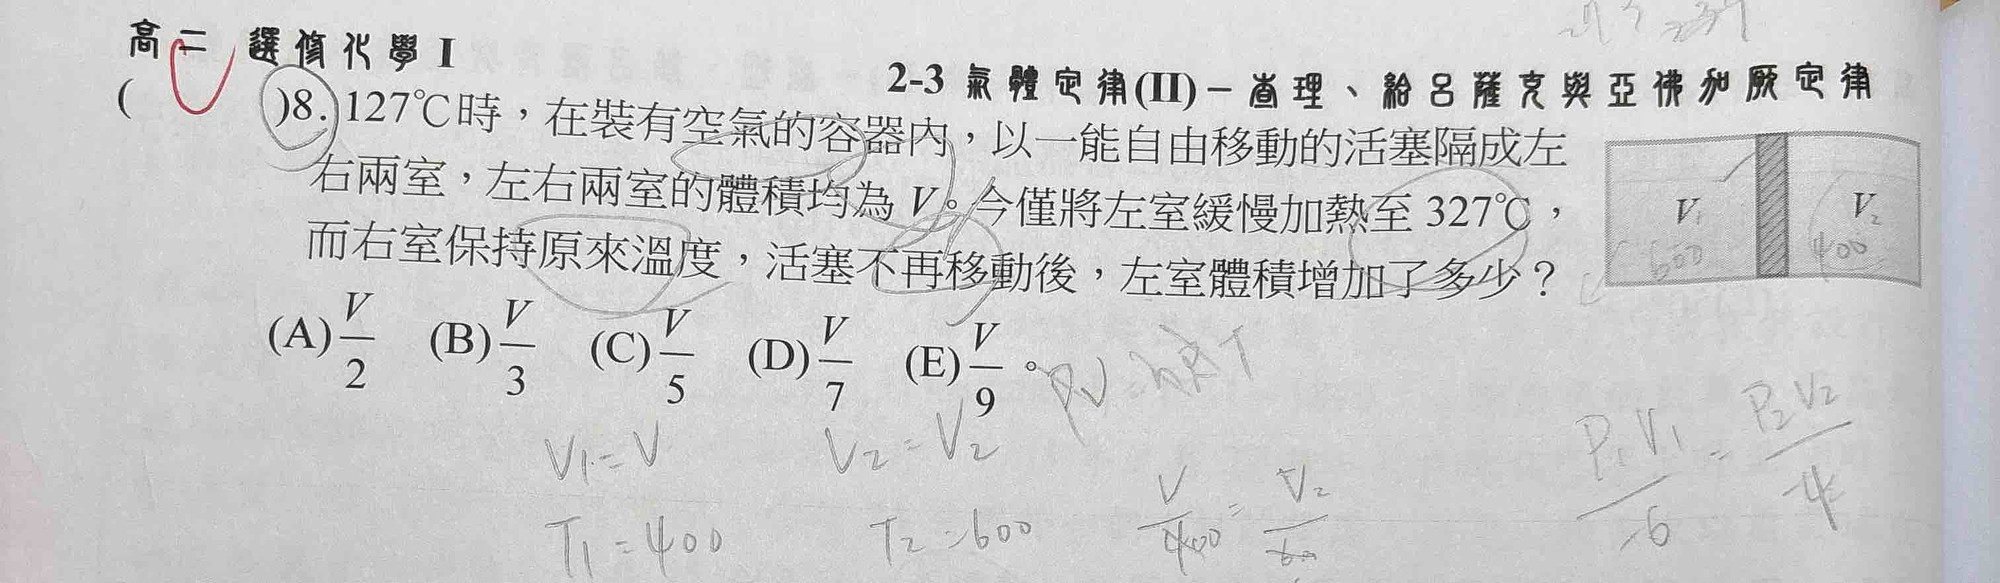 高二 選修化學 I
2-3 氣體定律(II)－查理、給呂薩克與亞佛加厥定律
( )8. 127℃時，在裝有空氣的容器內，以一能自由移動的活塞隔成左
右兩室，左右兩室的體積均為 V。今僅將左室緩慢加熱至 327℃，
而右室保持原來溫度，活塞不再移動後，左室體積增加了多少？
V₁ V₂
600 400
(A) V/2 (B) V/3 (C) V/5 (D) V/7 (E) V/9 。
PV=nRT
V₁=V V₂=V₂
T₁=400 T₂=600
V/400 = V₂/600
P₁V₁/6 = P₂V₂/4